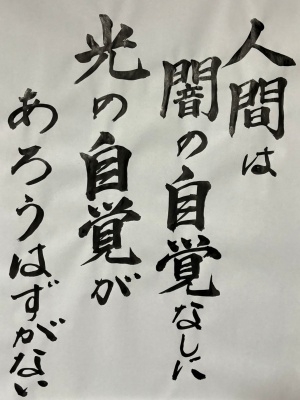 人間は
闇の自覚なしに
光の自覚が
あろうはずがない